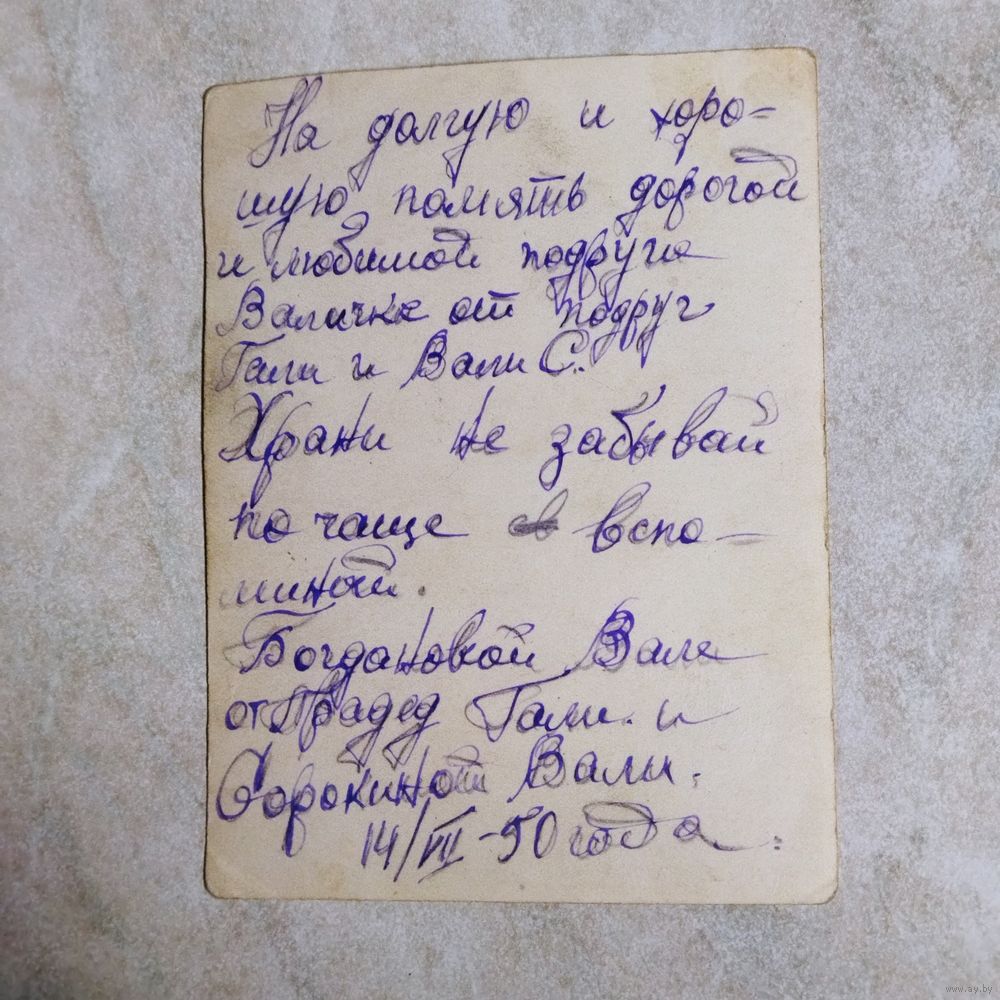 На долгую и хоро-
шую помять дорогой
и любимой подруги
Валичке от подруг
Гали и Вали С.
Храни не забывай
по чаще вспо-
миной.
Богдановой Вале
от Прадед Гали. и
Сорокиной Вали.
14/VII-50 года.
www.ay.by